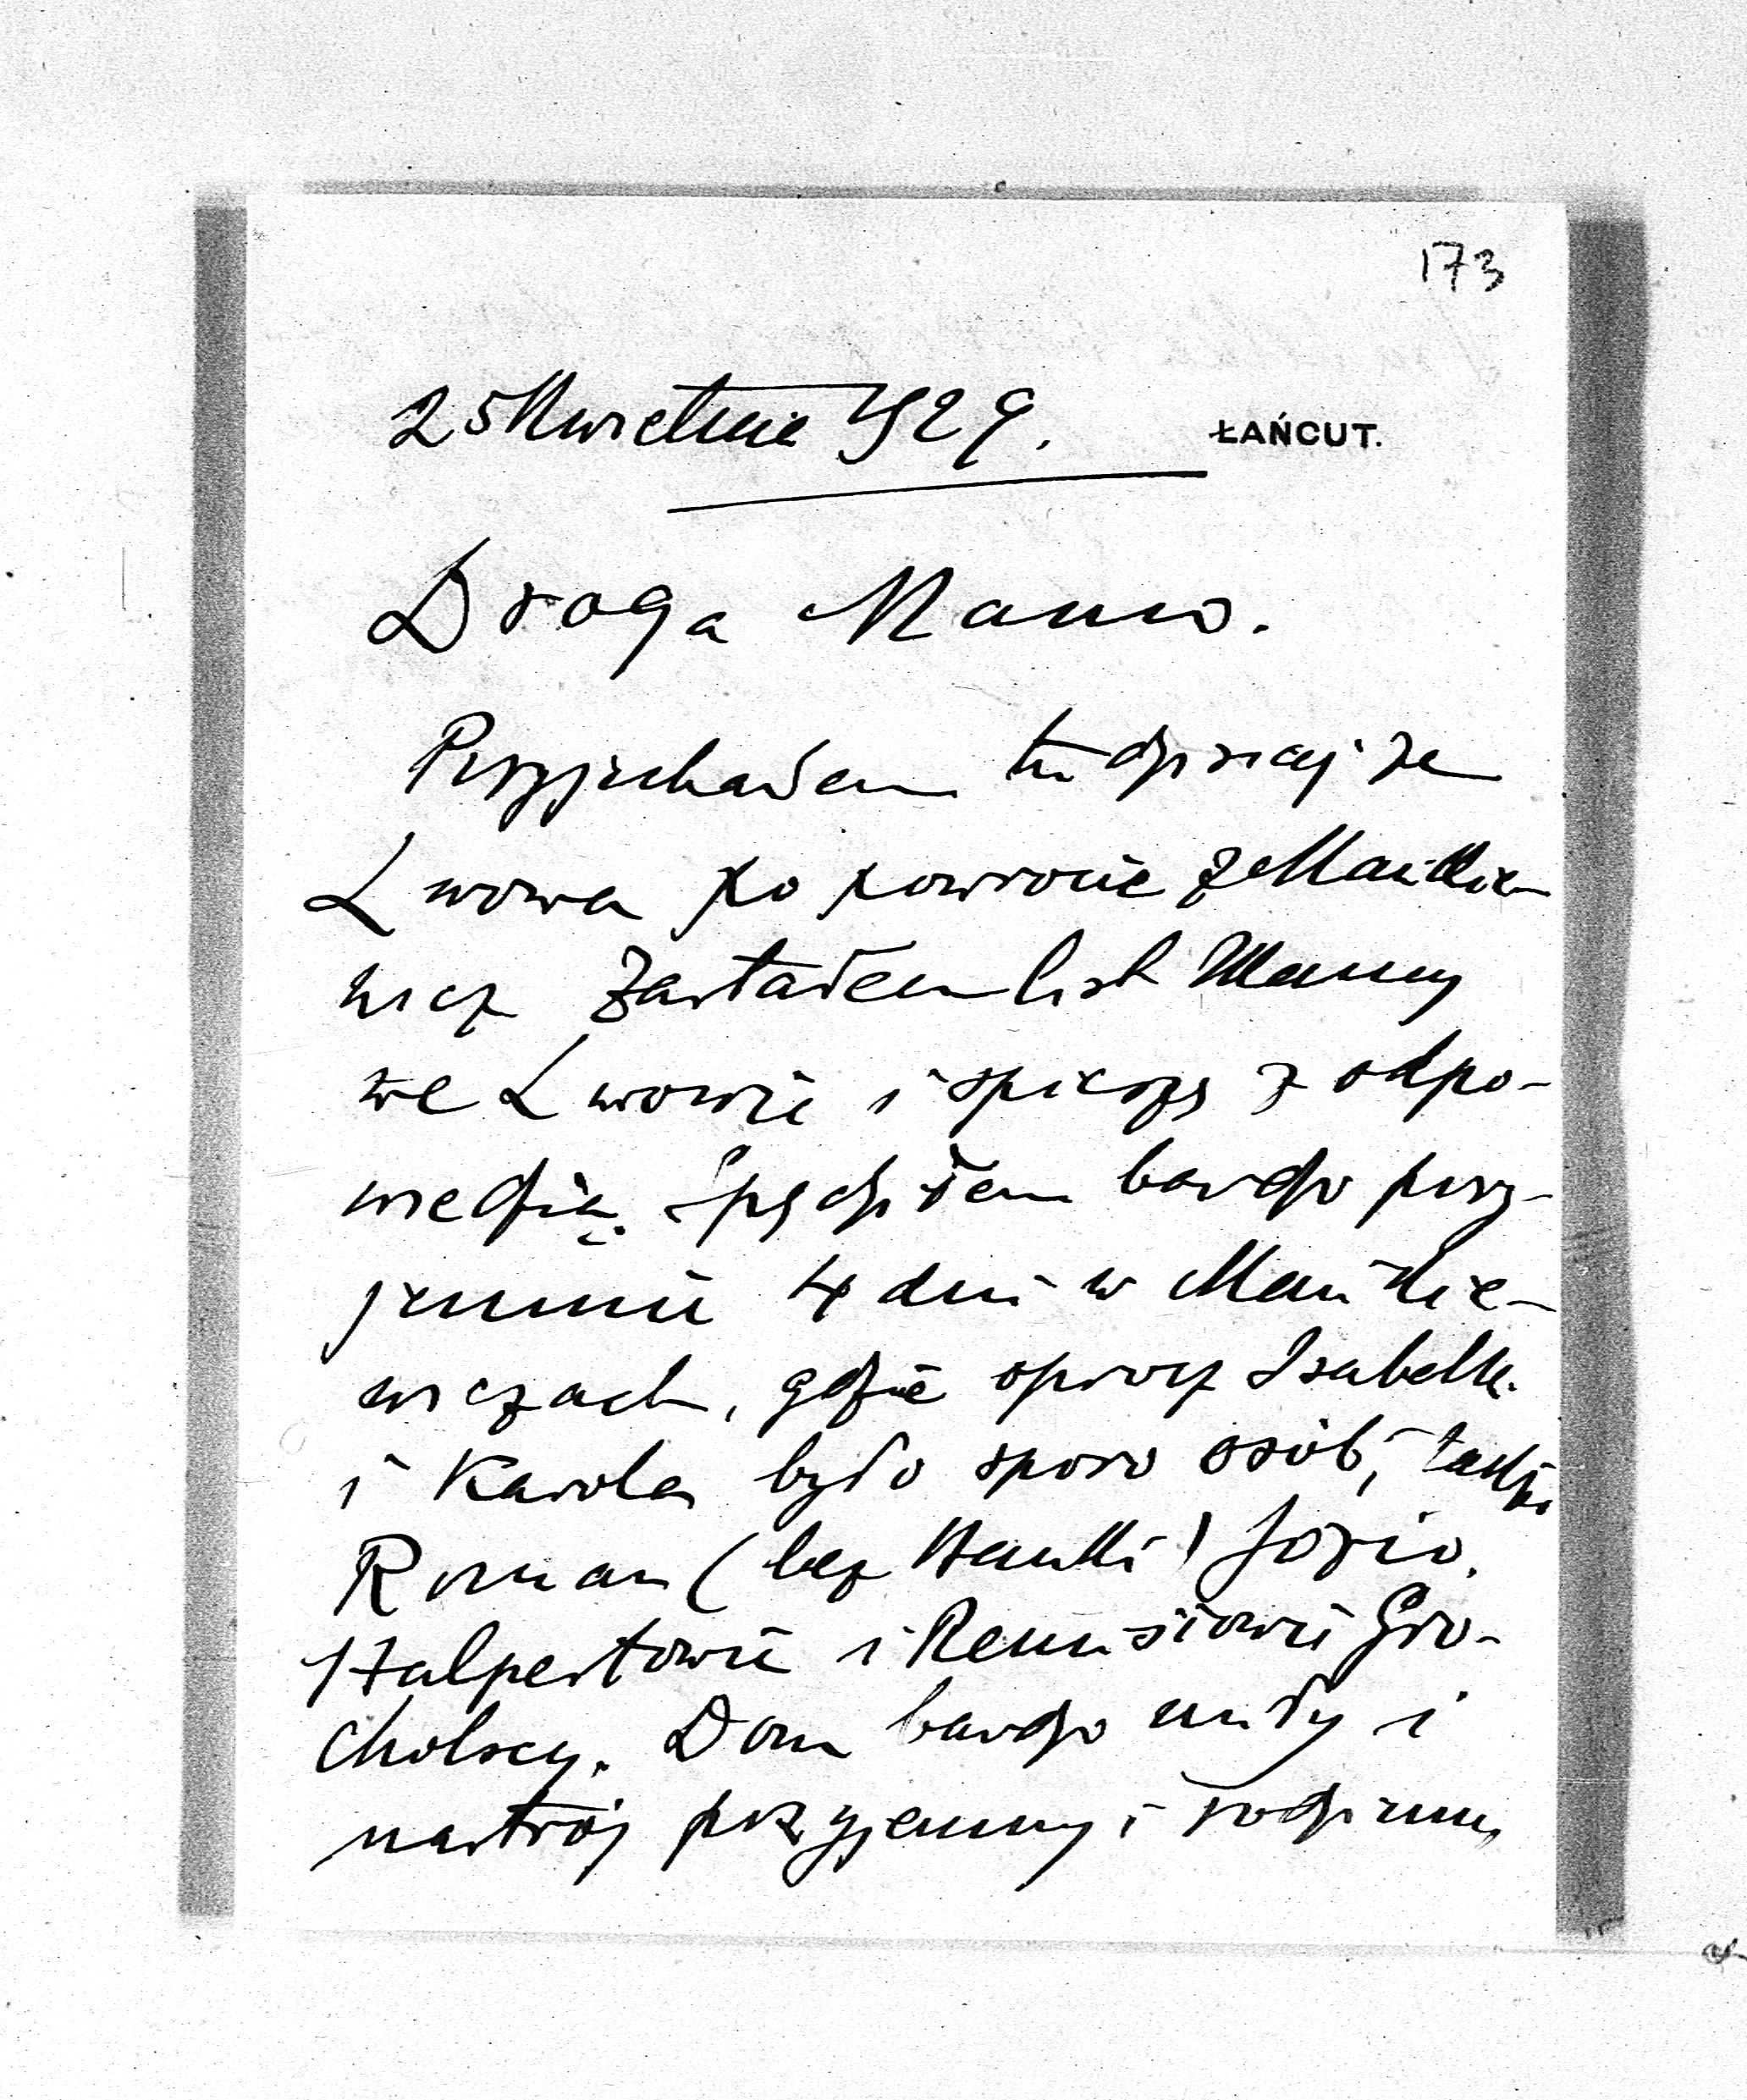 173
25 Kwietnia 1929. ŁAŃCUT.
Droga Mamo.
Przyjechałem tu dzisiaj ze
Lwowa po powrocie z Mańkie-
wicz Zastałem list Mamy
we Lwowie i spieszę z odpo-
wiedzią. Spędziłem bardzo przy-
jemnie 4 dni w Mańkie-
wiczach, gdzie oprócz Izabelki
i Karola było sporo osób,
Roman (bez Hanki) Józio,
Halpertowie i Remisiowie Gro-
cholscy. Dom bardzo miły i
nastrój przyjemny i rodzinny